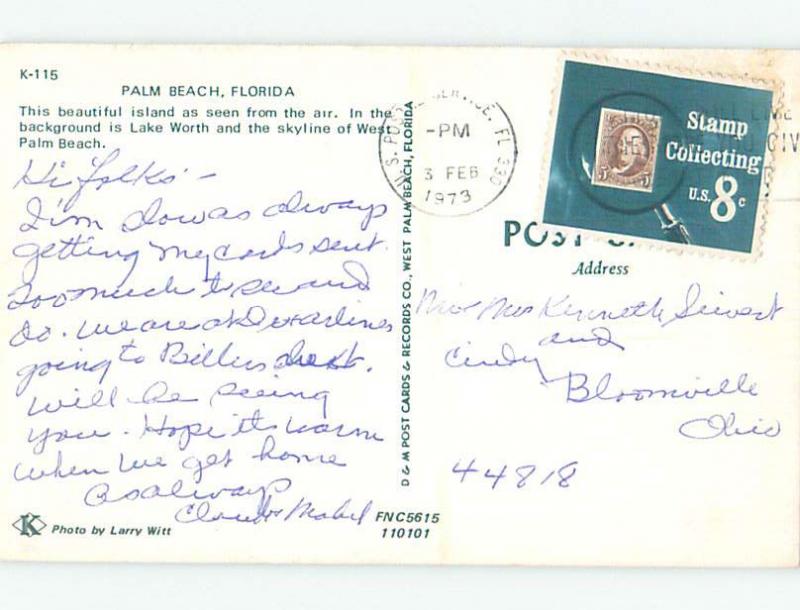 K-115
PALM BEACH, FLORIDA
This beautiful island as seen from the air. In the
background is Lake Worth and the skyline of West
Palm Beach.
Hi folks -
I'm slow as always
getting my cards sent.
Too much to see and
do. We are at
going to Billies next.
will be seeing
you. Hope its warm
when we get home
As always
Mabel
Photo by Larry Witt
K
FNC5615
110101
D & M POST CARDS & RECORDS CO., WEST PALM BEACH, FLORIDA
U.S. POSTAL SERVICE, FL 330
-PM
3 FEB
1973
Stamp
Collecting
U.S. 8c
5 5
POST
Address
Mr Mrs Kenneth Siewert
and
Cindy
Bloomville
Ohio
44818